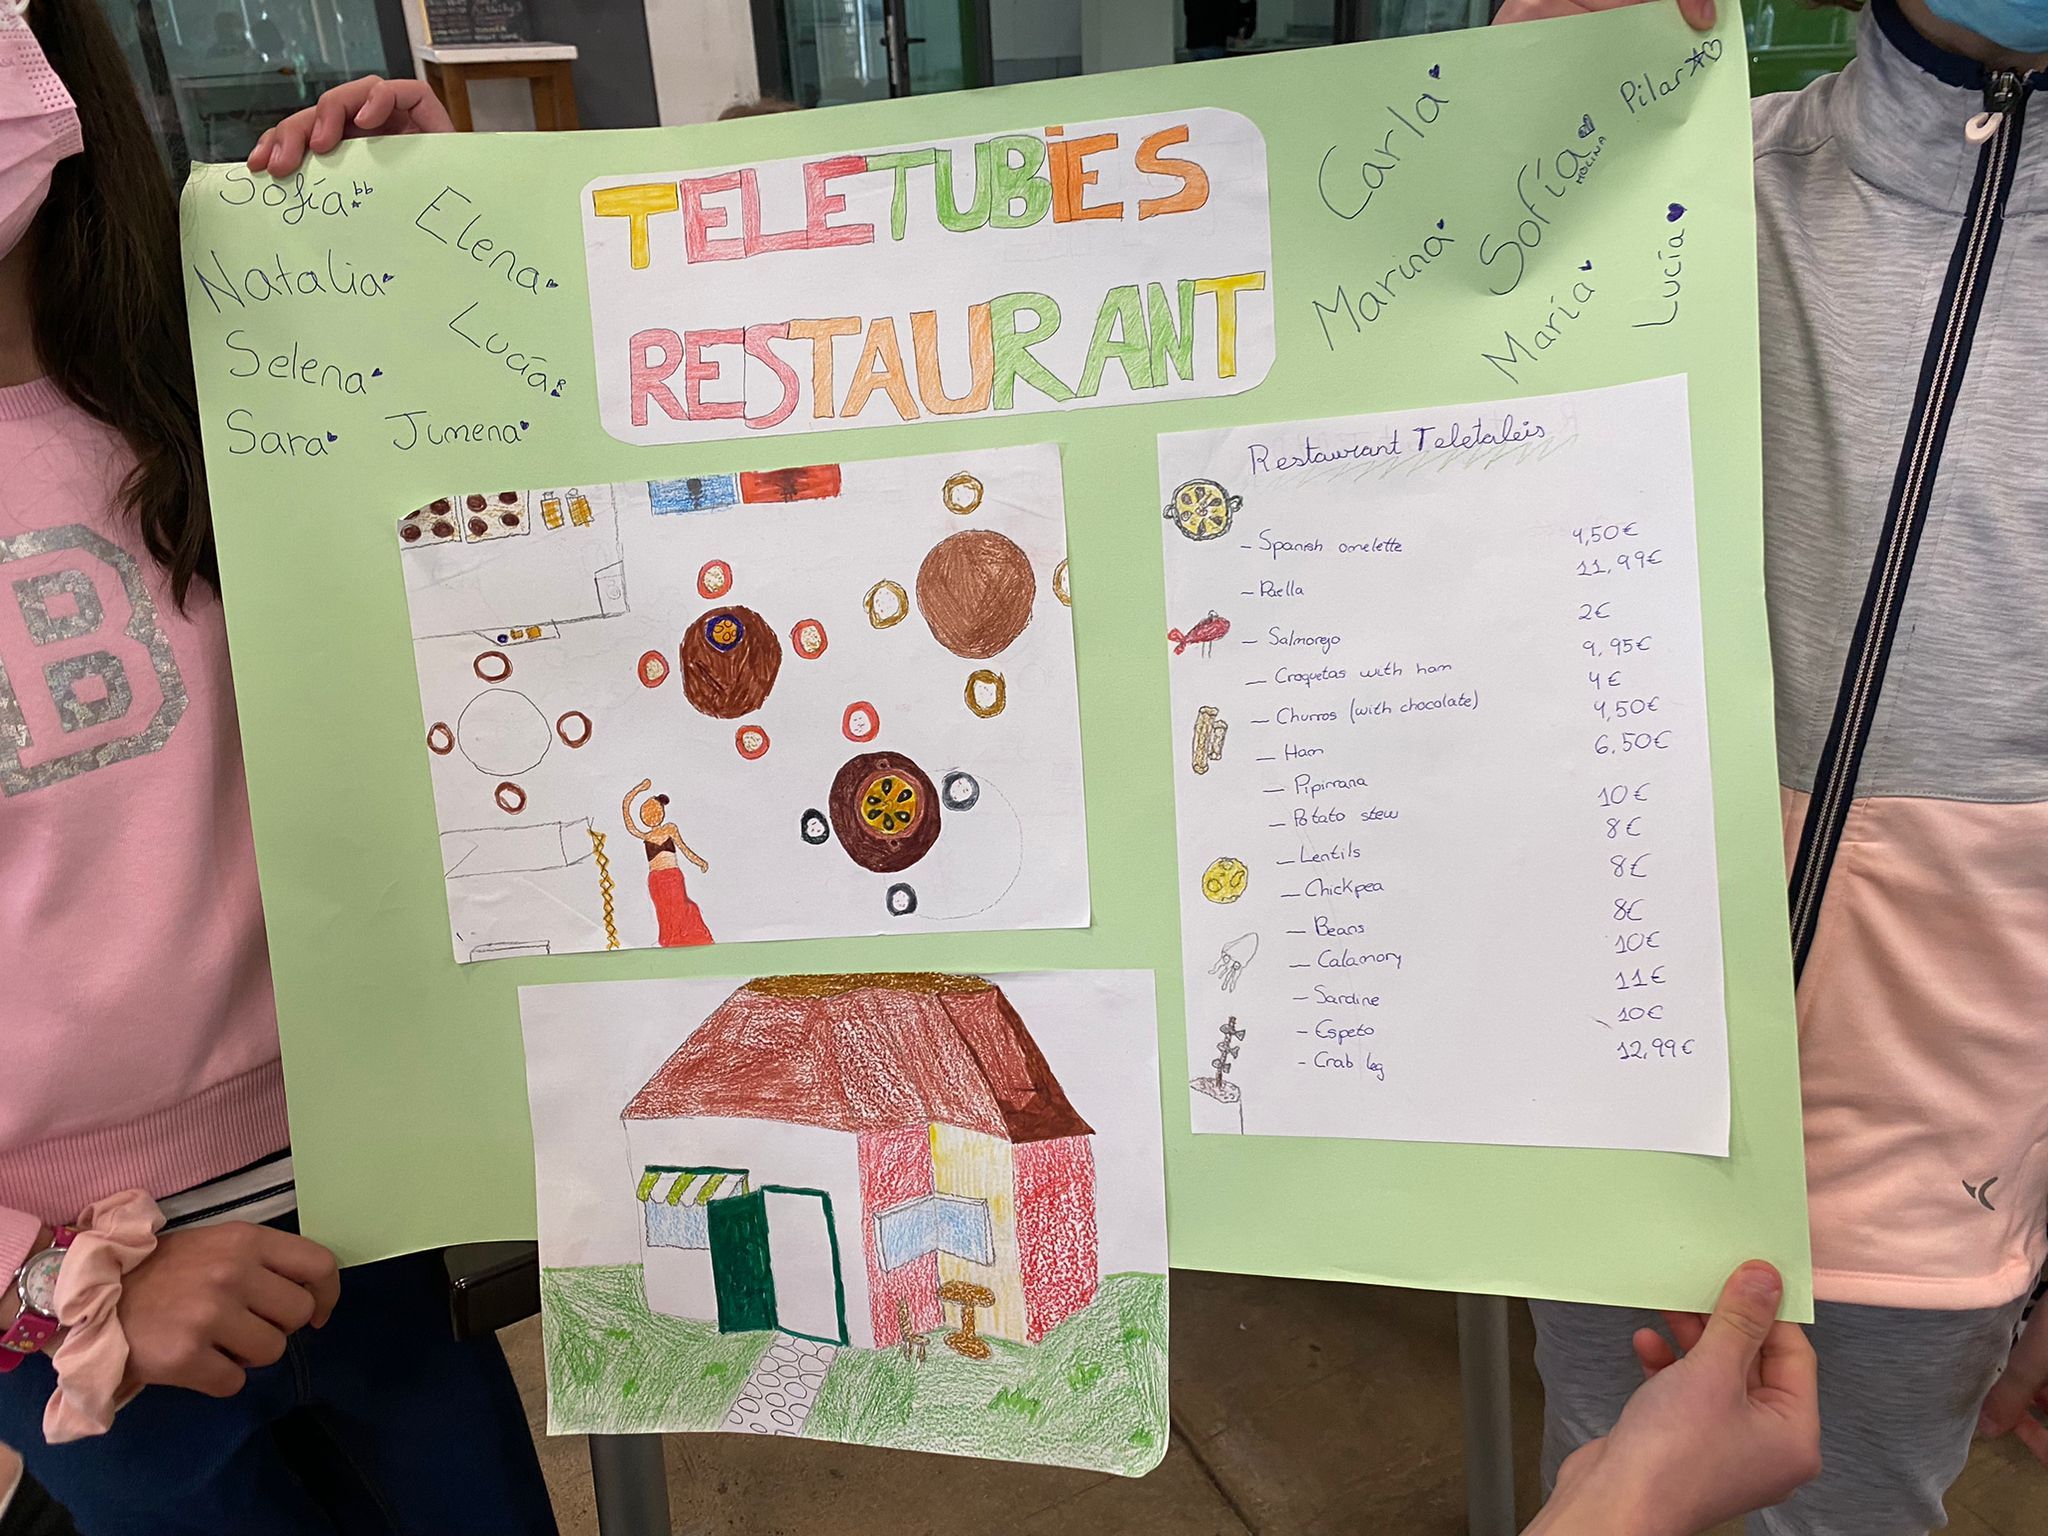 Sofía bb
Elena
Natalia
Lucía R
Selena
Sara
Jimena
TELETUBiES
RESTAURANT
Carla
Pilar
Sofía
MOLINA
Marina
María
Lucía
Restaurant Teletaleis
- Spanish omelette 4,50€
- Paella 11,99€
- Salmorejo 2€
- Croquetas with ham 9,95€
- Churros (with chocolate) 4€
- Ham 4,50€
- Pipirrana 6,50€
- Potato stew 10€
- Lentils 8€
- Chickpea 8€
- Beans 8€
- Calamory 10€
- Sardine 11€
- Espeto 10€
- Crab leg 12,99€
B